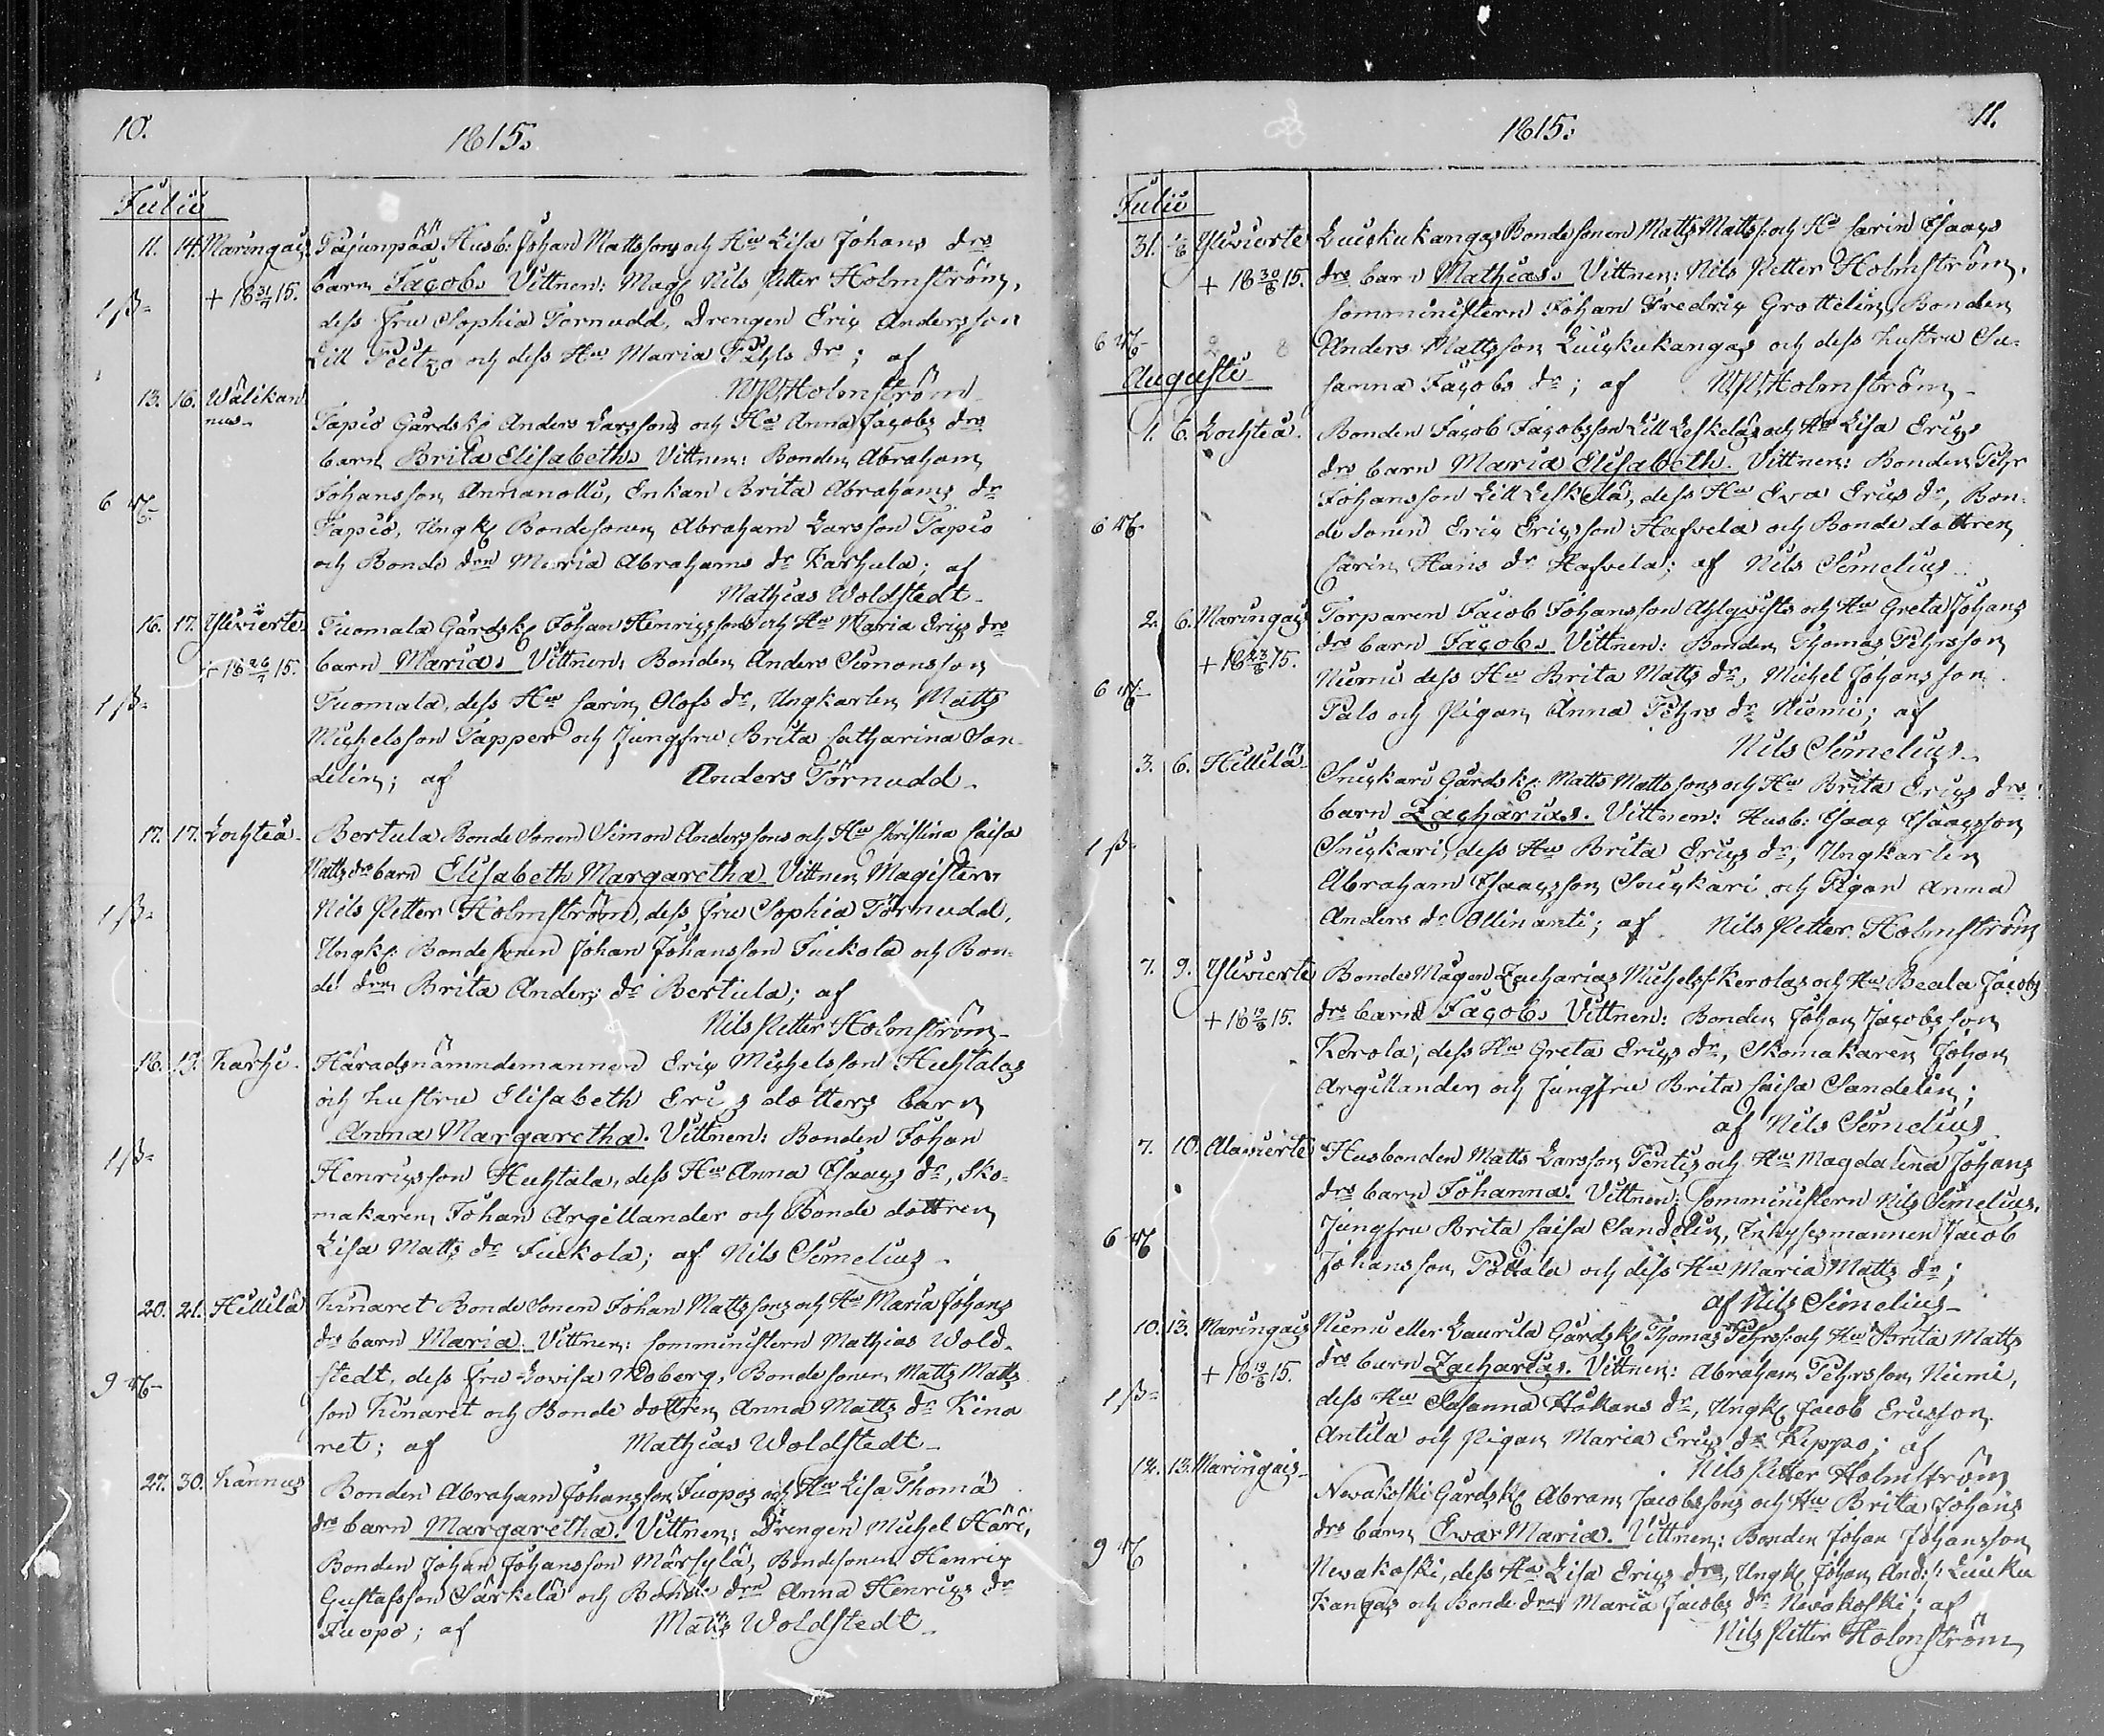 10.
1815.
Julii
11. 14. Maringais Pajunpää Husb: Johan Mattssons och Hu Lisa Johans drs
1 ß- + 18 31/7 15. barn Jacob. Vittnen: Mag Nils Petter Holmström,
dess fru Sophia Tornudd, Drengen Eric Andersson
Lill Peitzo och dess Hu Maria Pehrs dr; af
NPHolmström
13. 16. Wälikan
nus- Tapio Gårdsk Anders Larssons och Hu Anna Jacobs drs
barn Brita Elisabeth. Vittnen: Bonden Abraham
Johansson Annanolli, Enkan Brita Abrahams dr
6
Tapio, Ungk Bondesonen Abraham Larsson Tapio
och Bonde drn Maria Abrahams dr Karhula; af
Mathias Woldstedt-
16. 17. Yliwierte Tuomala Gårdsk Johan Henricssons och Hu Maria Erics drs
+ 18 26/7 15. barn Maria. Vittnen: Bonden Anders Simonsson
1 ß- Tuomala, dess Hu Carin Olofs dr, Ungkarlen Matts
Michelsson Tapper och Jungfru Brita Catharina San-
delin; af Anders Törnudd-
17. 17. Lochteå- Bertula Bonde Sonen Simon Anderssons och Hu Christina Caisa
Matts drs barn Elisabeth Margaretha Vittnen Magistern
1 ß- Nils Petter Holmström, dess fru Sophia Törnudd,
Ungk: Bondesonen Johan Johansson Juckola och Bon-
de drn Brita Anders dr Bertula; af
Nils Petter Holmström-
18. 19. Karhi- Häradsnämndemannen Eric Michelsson Huhtalas
och hustru Elisabeth Erics dotters barn
Anna Margaretha. Vittnen: Bonden Johan
1 ß- Henricsson Huhtala, dess Hu Anna Isaacs dr, Sko-
makaren Johan Argillander och Bonde dottren
Lisa Matts dr Juckola; af Nils Simelius-
20. 21. Hillilä Kinaret Bonde Sonen Johan Mattssons och Hu Maria Johans
drs barn Maria. Vittnen: Comministern Mathias Wold-
stedt, dess fru Lovisa Moberg, Bonde sonen Matts Matts
9
son Kinaret och Bonde dottren Anna Matts dr Kina
ret; af Mathias Woldstedt-
27. 30. Kannus Bonden Abraham Johansson Juopos och Hu Lisa Thomæ
drs barn Margaretha. Vittnen: Drengen Michel Häri,
Bonden Johan Johansson Märsylä, Bondesonen Henric
Gustafsson Särkelä och Bonde drn Anna Henrics dr
Juopo; af Matts Woldstedt-
11.
1815.
Julii
31. 1/8 Yliwierte Luickukangas Bondesonen Matts Matts: och Hu Carin Isaacs
+ 18 30/8 15. drs barn Mathias. Vittnen: Nils Petter Holmström,
Comministern Johan Fredric Grottelin, Bonden
6 Anders Mattsson Luickukangas och dess hustru Su-
Augusti- sanna Jacobs dr; af NPHolmström-
1. 6. Lochteå. Bonden Jacob Jacobsson Lill Leskeläs och Hu Lisa Erics
drs barn Maria Elisabeth. Vittnen: Bonden Pehr
Johansson Lill Leskelä, dess Hu Eva Erics dr, Bon-
6 de sonen Eric Ericsson Hafvela och Bonde dottren
Carin Hans dr Hafvela; af Nils Simelius-
2. 6. Maringais Torparen Jacob Johansson Ahlqvists och Hu Greta Johans
drs barn Jacob. Vittnen: Bonden Thomas Pehrsson
+ 18 23/8 15.
6 Niemi dess Hu Brita Matts dr, Michel Johansson
Palo och Pigan Anna Pehrs dr Niemi; af
Nils Simelius-
3. 6. Hillilä- Snickari Gårdsk: Matts Mattssons och Hu Brita Erics drs
barn Zacharias. Vittnen: Husb: Isaac Isaacsson
1 ß- Snickari, dess Hu Brita Erics dr, Ungkarlen
Abraham Isaacsson Snickari och Pigan Anna
Anders dr Ollinanti; af Nils Petter Holmström
7. 9. Yliwierte Bonde Mågen Zacharias Michelss Kerolas och Hu Beata Jacobs
+ 18 19/8 15. drs barn Jacob. Vittnen: Bonden Johan Jacobsson
Kerola, dess Hu Greta Erics dr, Skomakaren Johan
Argillander och Jungfru Brita Caisa Sandelin;
af Nils Simelius
7. 10. Alawierte Husbonden Matts Larsson Pentis och Hu Magdalena Johans
drs barn Johanna. Vittnen: Comministern Nils Simelius,
Jungfru Brita Caisa Sandelin, Inhysesmannen Jacob
6
Johansson Pottala och dess Hu Maria Matts dr;
af Nils Simelius-
10. 13. Maringais Niemi eller Laurila Gårdsk Thomas Pehrss: och Hu Brita Matts
+ 18 19/8 15. drs barn Zacharias. Vittnen: Abraham Pehrsson Niemi,
1 ß- dess Hu Susanna Håkans dr, Ungk Jacob Ericsson
Antila och Pigan Maria Erics dr Kippo; af
Nils Petter Holmström
12. 13. Maringais- Newakoski Gårdsk Abram Jacobssons och Hu Brita Johans
drs barn Ewa Maria. Vittnen: Bonden Johan Johansson
9 Newakoski, dess Hu Lisa Erics dr, Ungk Johan And:s: Luicku
kangas och Bonde drn Maria Jacobs dr Newakoski; af
Nils Petter Holmström